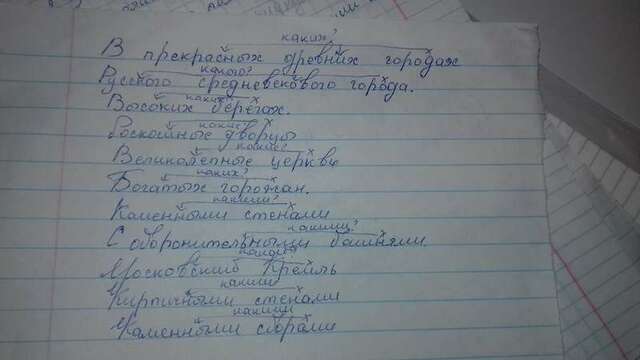 каких?
В прекрасных древних городах
какого?
Русского средневекового города.
каких?
Высоких берегах.
какие?
Роскошные дворцы
какие?
Великолепные церкви
каких?
Богатых горожан.
какими?
Каменными стенами
какими?
С оборонительными башнями.
какой?
Московский Кремль
какими
Кирпичными стенами
какими
Каменными